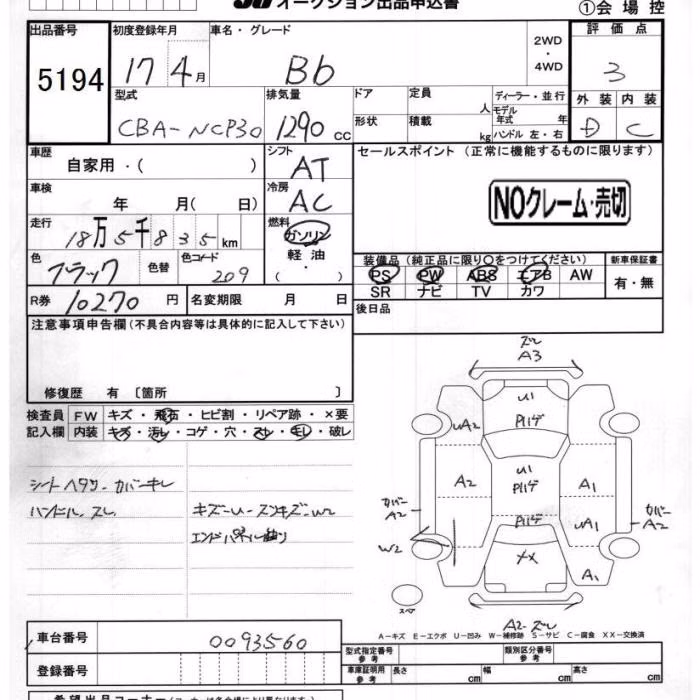 オークション出品申込書
①会場控
出品番号
5194
初度登録年月
17年4月
車名・グレード
Bb
2WD
・
4WD
評価点
3
外装 内装
D C
型式
CBA-NCP30
排気量
1290 cc
ドア
形状
定員 人
積載 kg
ディーラー・並行
モデル年式 年
ハンドル 左・右
車歴
自家用・( )
シフト
AT
セールスポイント (正常に機能するものに限ります)
NOクレーム・売切
車検
年 月( 日)
冷房
AC
走行
18万5千835km
燃料
ガソリン
軽油
( )
色
ブラック
色替
色コード
209
装備品 (純正品に限り○をつけてください)
PS PW ABS エアB AW
SR ナビ TV カワ
新車保証書
有・無
R券 10270 円
名変期限 月 日
後日品
注意事項申告欄(不具合内容等は具体的に記入して下さい)
修復歴 有 〔箇所 〕
検査員記入欄
FW キズ・飛石・ヒビ割・リペア跡・×要
内装 キズ・汚れ・コゲ・穴・スレ・キレ・破レ
シートヘタリ-カバーキレ
ハンドル スレ
キズ-U-スンキズ-W2
エンドパネル曲り
ズレ
A3
UI
Pハゲ
UA2
A2
UI
Pハゲ
A1
カバー
A2
Pハゲ
UA1
カバー
A2
W2
XX
A1
スペア
A2-ズレ
A-キズ E-エクボ U-凹み W-補修跡 S-サビ C-腐食 XX-交換済
車台番号
0093560
型式指定番号
参考
類別区分番号
参考
登録番号
車庫証明用
参考
長さ cm
幅 cm
高さ cm